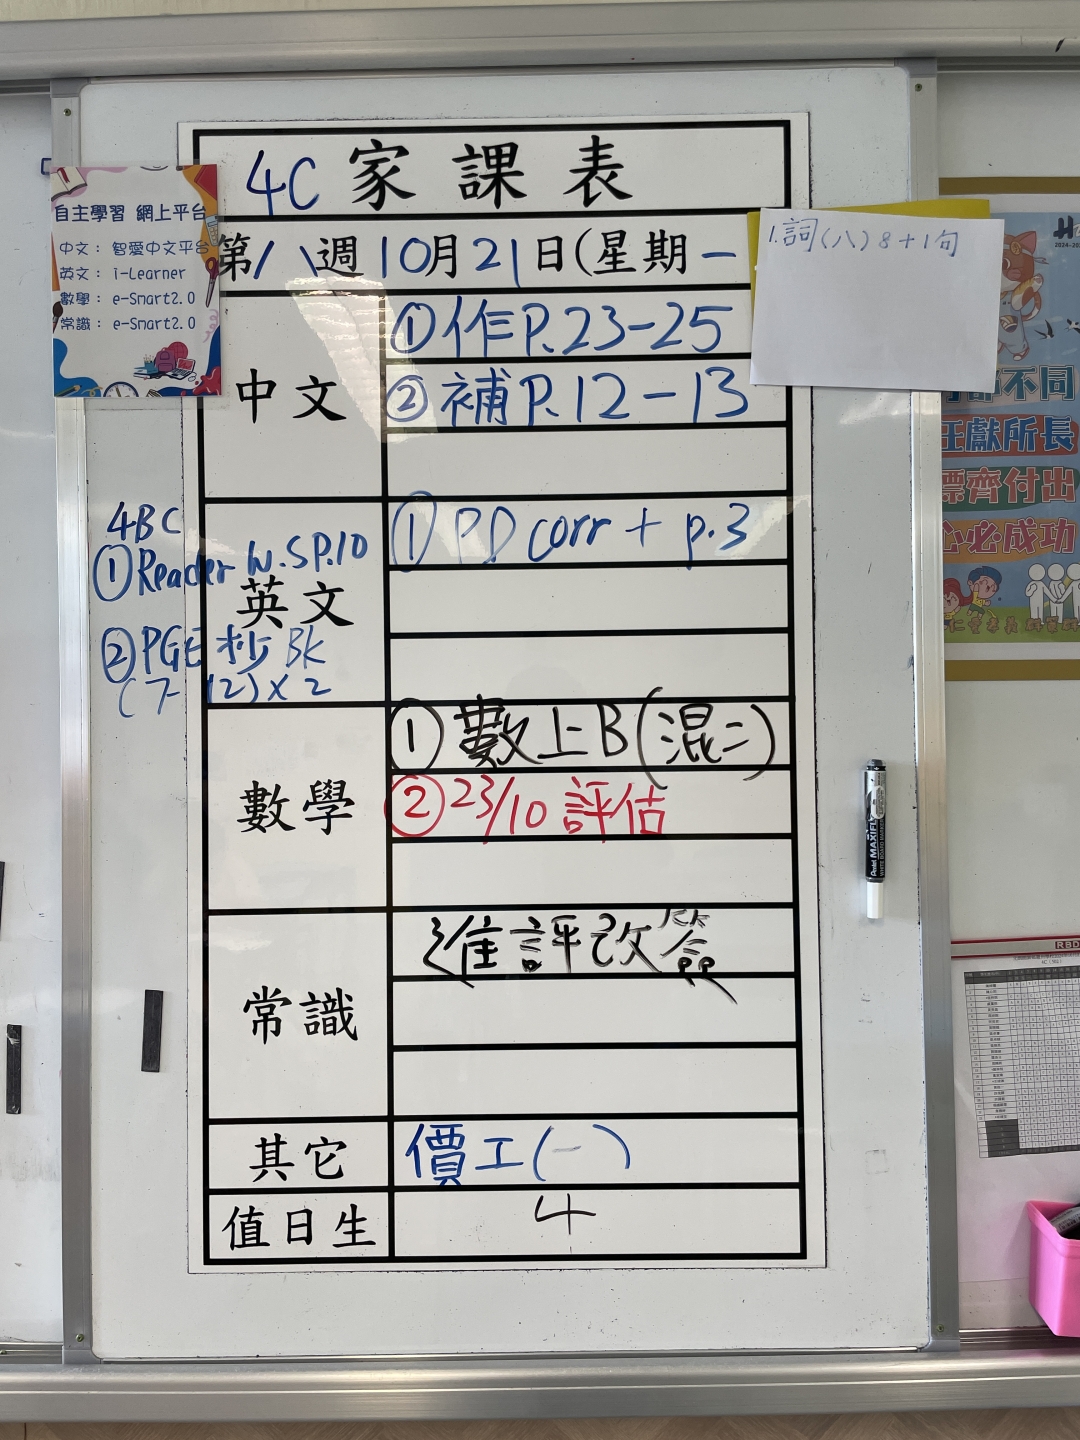 4C 家課表
第八週10月21日(星期一
自主學習 網上平台
中文： 智愛中文平台
英文： i-Learner
數學： e-Smart2.0
常識： e-Smart2.0
1.詞(八) 8+1句
中文
①作P.23-25
②補P.12-13
4BC
①Reader W.S P.10
②PGE 抄 Bk
(7-12)×2
英文
①PD corr + p.3
數學
①數上B(混二)
②23/10 評估
常識
進評改簽
其它
價工(一)
值日生
4
不同
所長
齊付出
心必成功
Pentel MAXIFLO